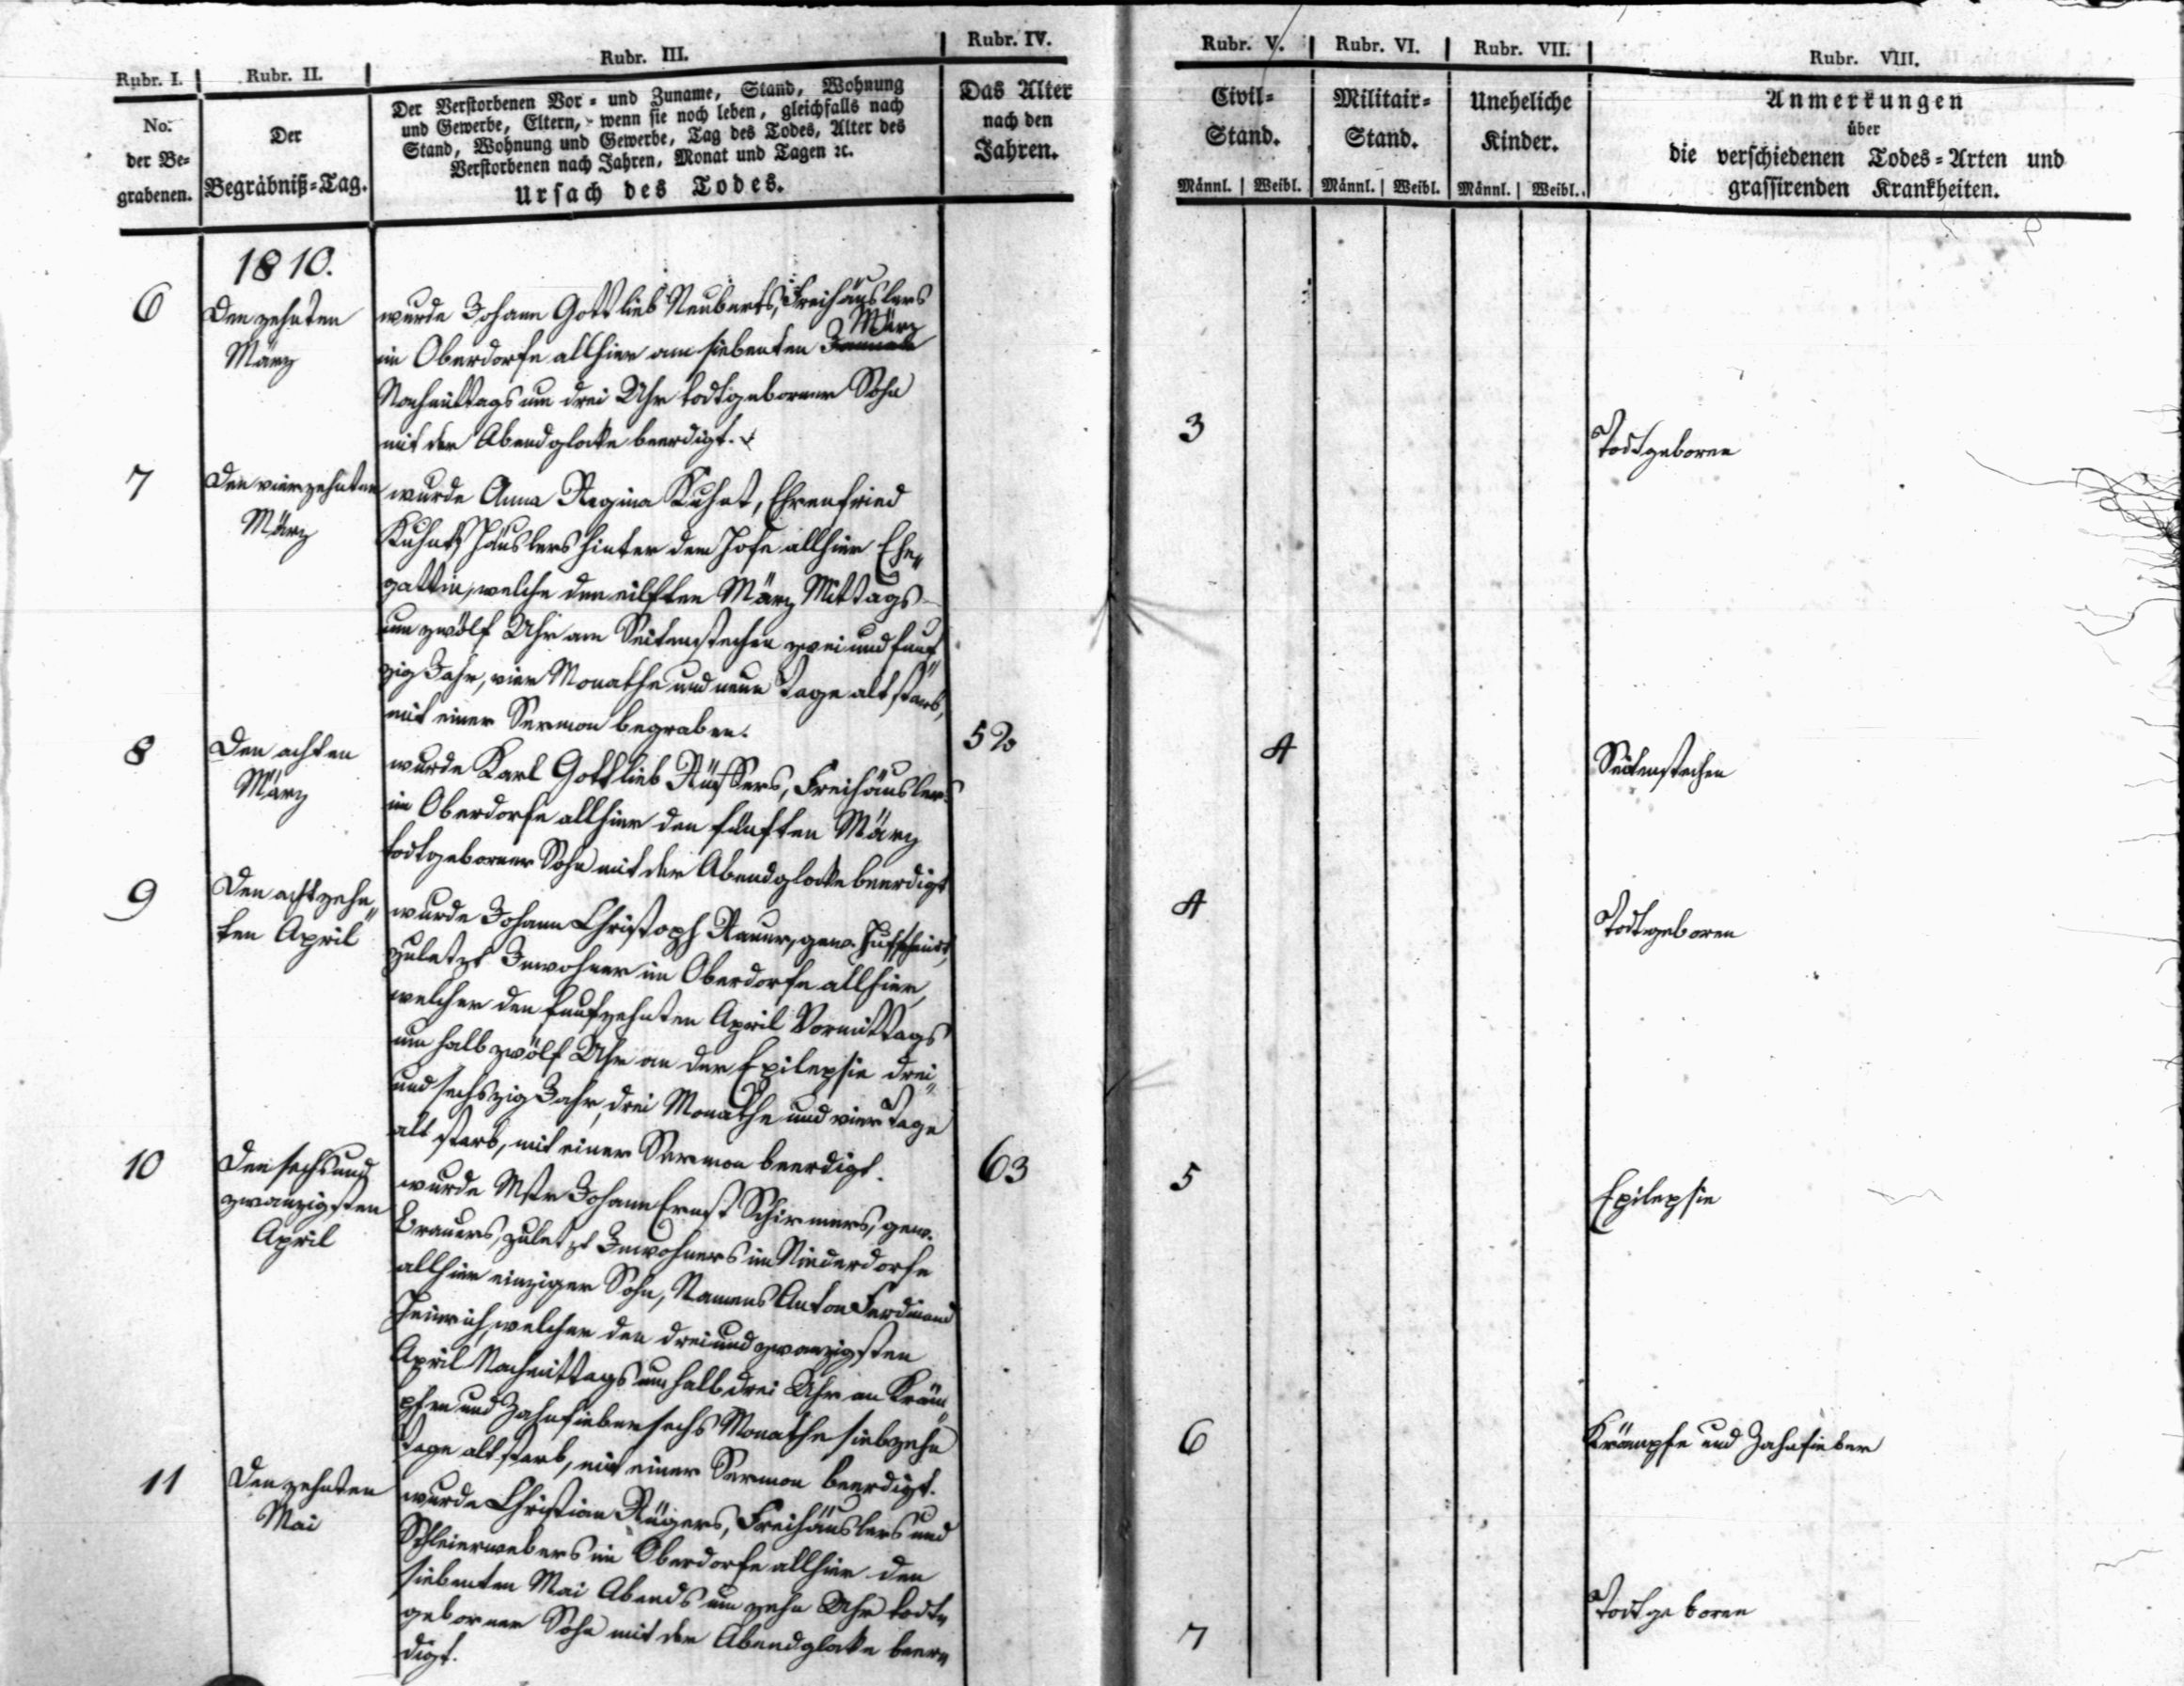 Rubr. I. Rubr. II. Rubr. III. Rubr. IV. Rubr. V. Rubr. VI. Rubr. VII. Rubr. VIII.
No. der Be- grabenen.
Der Begräbniß-Tag.
Der Verstorbenen Vor- und Zuname, Stand, Wohnung
und Gewerbe, Eltern, wenn sie noch leben, gleichfalls nach
Stand, Wohnung und Gewerbe, Tag des Todes, Alter des
Verstorbenen nach Jahren, Monat und Tagen ꝛc.
Ursach des Todes.
Das Alter
nach den
Jahren.
Civil-
Stand.
Männl. Weibl.
Militair-
Stand.
Männl. Weibl.
Uneheliche
Kinder.
Männl. Weibl.
Anmerkungen
über
die verschiedenen Todes-Arten und
grassirenden Krankheiten.
1810.
6
Den zehnten
März
wurde Johann Gottlieb Neuberts, Freihäuslers
März
im Oberdorfe allhier am siebenten
Nachmittags um drei Uhr todtgeborner Sohn
mit der Abendglocke beerdigt.
3
Todtgeboren
7
Den vierzehnten
März
wurde Anna Regina Kuhnt, Ehrenfried
Kuhnts Häuslers hinter dem Hofe allhier Ehe„
gattin, welche den eilften März Mittags
um zwölf Uhr am Seitenstechen zwei und funf„
zig Jahr, vier Monathe und neun Tage alt starb,
mit einer Sermon begraben.
52
4
Seitenstechen
8
Den achten
März
wurde Karl Gottlieb Rüffers, Freihäuslers
im Oberdorfe allhier den fünften März
todtgeborner Sohn mit der Abendglocke beerdigt
4
Todtgeboren
9
Den achtzehn„
ten April
wurde Johann Christoph Rauer, gew. Hufschmidt,
zuletzt Inwohner im Oberdorfe allhier,
welcher den funfzehnten April Vormittags
um halb zwölf Uhr an der Epilepsie drei„
und sechszig Jahr, drei Monathe und vier Tage
alt starb, mit einer Sermon beerdigt.
63
5
Epilepsie
10
Den sechs und
zwanzigsten
April
wurde Mstr Johann Ernst Schirmers, gew.
Brauers, zuletzt Inwohners im Niederdorfe
allhier einziger Sohn, Namens Anton Ferdinand
Heinrich, welcher den dreiundzwanzigsten
April Nachmittags um halb drei Uhr an Kräm„
pfen und Zahnfieber sechs Monathe siebzehn
Tage alt starb, mit einer Sermon beerdigt.
6
Krämpfe und Zahnfieber
11
Den zehnten
Mai
wurde Christian Rügers, Freihäuslers und
Schleierwebers im Oberdorfe allhier den
siebenten Mai Abends um zehn Uhr todt„
geborner Sohn mit der Abendglocke beer„
digt.
7
Todtgeboren